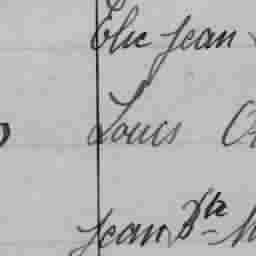 Élie Jean
Louis
Jean Bte